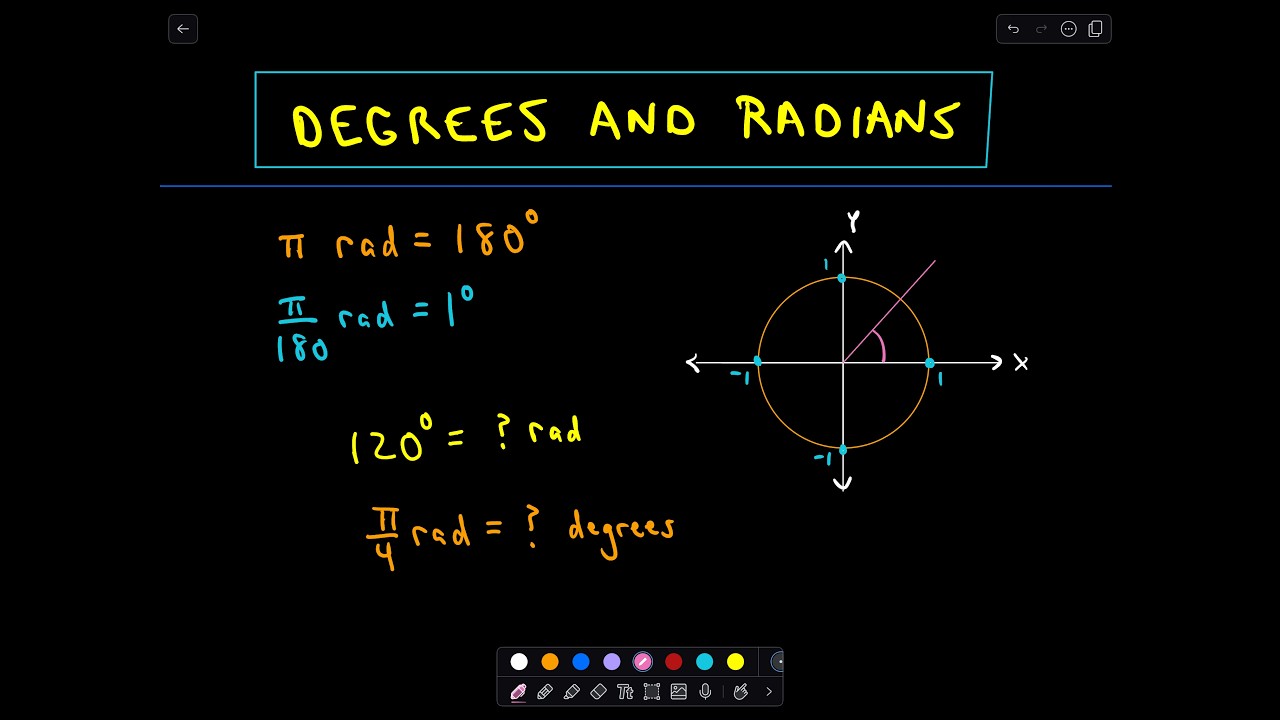 DEGREES AND RADIANS
π rad = 180°
π/180 rad = 1°
120° = ? rad
π/4 rad = ? degrees
Y
1
-1
1
X
-1
Tt